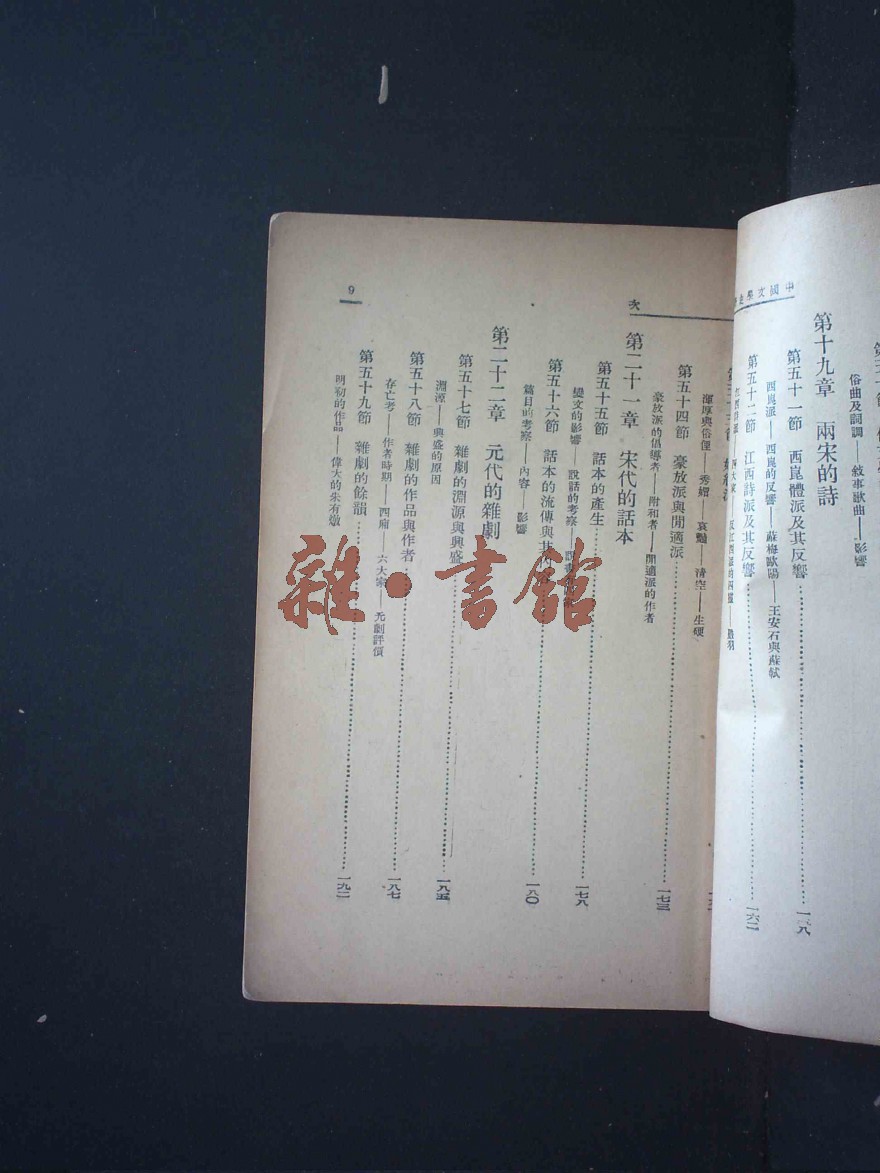 中國文學史
俗曲及詞調——敘事歌曲——影響
第十九章　兩宋的詩
第五十一節　西崑體派及其反響……一五八
西崑派——西崑的反響——蘇梅歐陽——王安石與蘇軾
第五十二節　江西詩派及其反響……一六二
次
渾厚與俗俚——秀媚——哀豔——清空——生硬
第五十四節　豪放派與閒適派……一七三
豪放派的倡導者——附和者——閒適派的作者
第二十一章　宋代的話本
第五十五節　話本的產生……一七八
變文的影響——說話的考察
第五十六節　話本的流傳與其……一八〇
篇目的考察——內容——影響
第二十二章　元代的雜劇
第五十七節　雜劇的淵源與興盛……一八五
淵源——興盛的原因
第五十八節　雜劇的作品與作者……一八七
存亡考——作者時期——西廂——六大家——元劇評價
第五十九節　雜劇的餘韻……一九二
明初的作品——偉大的朱有燉
9
雜·書館